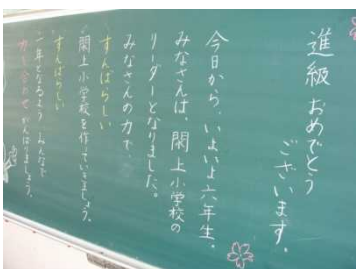 進級 おめでとう
ございます。
今日から、いよいよ六年生。
みなさんは、閖上小学校の
リーダーとなりました。
みなさんの力で、
すんばらしい
閖上小学校を作っていきましょう。
すんばらしい
一年となるよう みんなで
力を合わせ がんばりましょう。